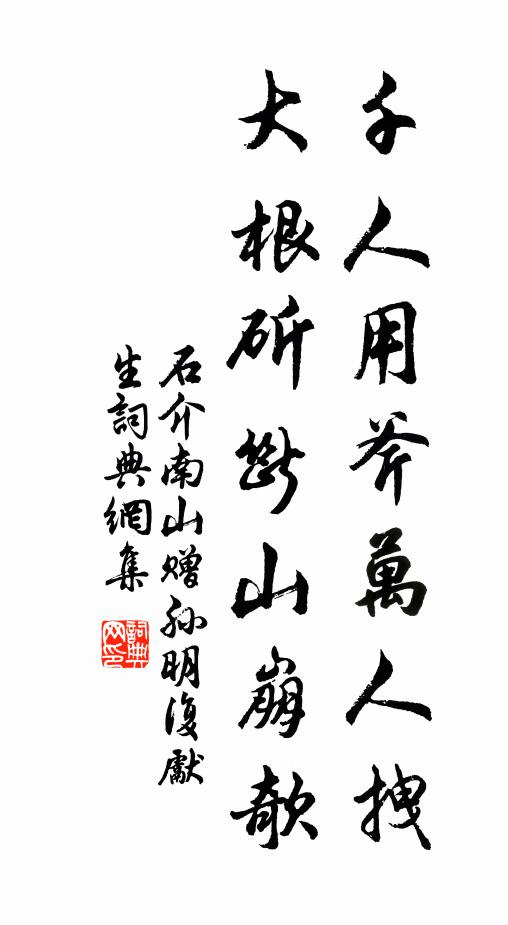 千人用斧萬人拽
大根斫斷山崩欹
石介南山贈孫明復獻
生詞典網集
詞典
网印